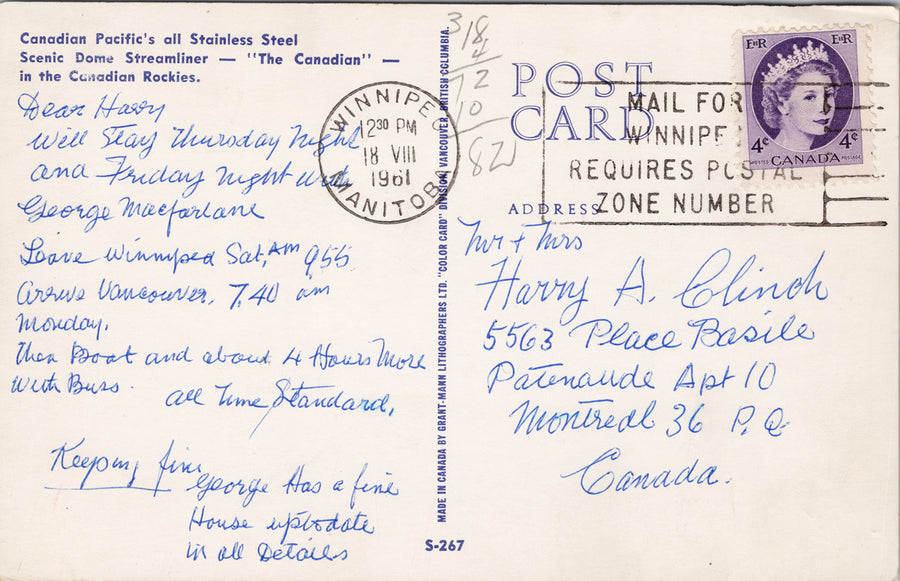 Canadian Pacific's all Stainless Steel
Scenic Dome Streamliner — "The Canadian" —
in the Canadian Rockies.
Dear Harry
Will Stay Thursday Night
and Friday Night with
George Macfarlane
Leave Winniped Sat, AM 955
arrive Vancouver, 7.40 am
Monday.
Then Boat and about 4 Hours More
With Buss.
all Time Standard,
Keeping fine
George Has a fine
House uptodate
in all Details
WINNIPEG
12 30 PM
18 VIII
1961
MANITOBA
MADE IN CANADA BY GRANT-MANN LITHOGRAPHERS LTD. "COLOR CARD" DIVISION, VANCOUVER, BRITISH COLUMBIA.
S-267
318
4
72
10
82
POST
CARD
ADDRESS
MAIL FOR
WINNIPE
REQUIRES POSTAL
ZONE NUMBER
EIIR EIIR
4¢ 4¢
POSTES CANADA POSTAGE
Mr + Mrs
Harry A. Clinch
5563 Place Basile
Patenaude Apt 10
Montreal 36 P.Q.
Canada.